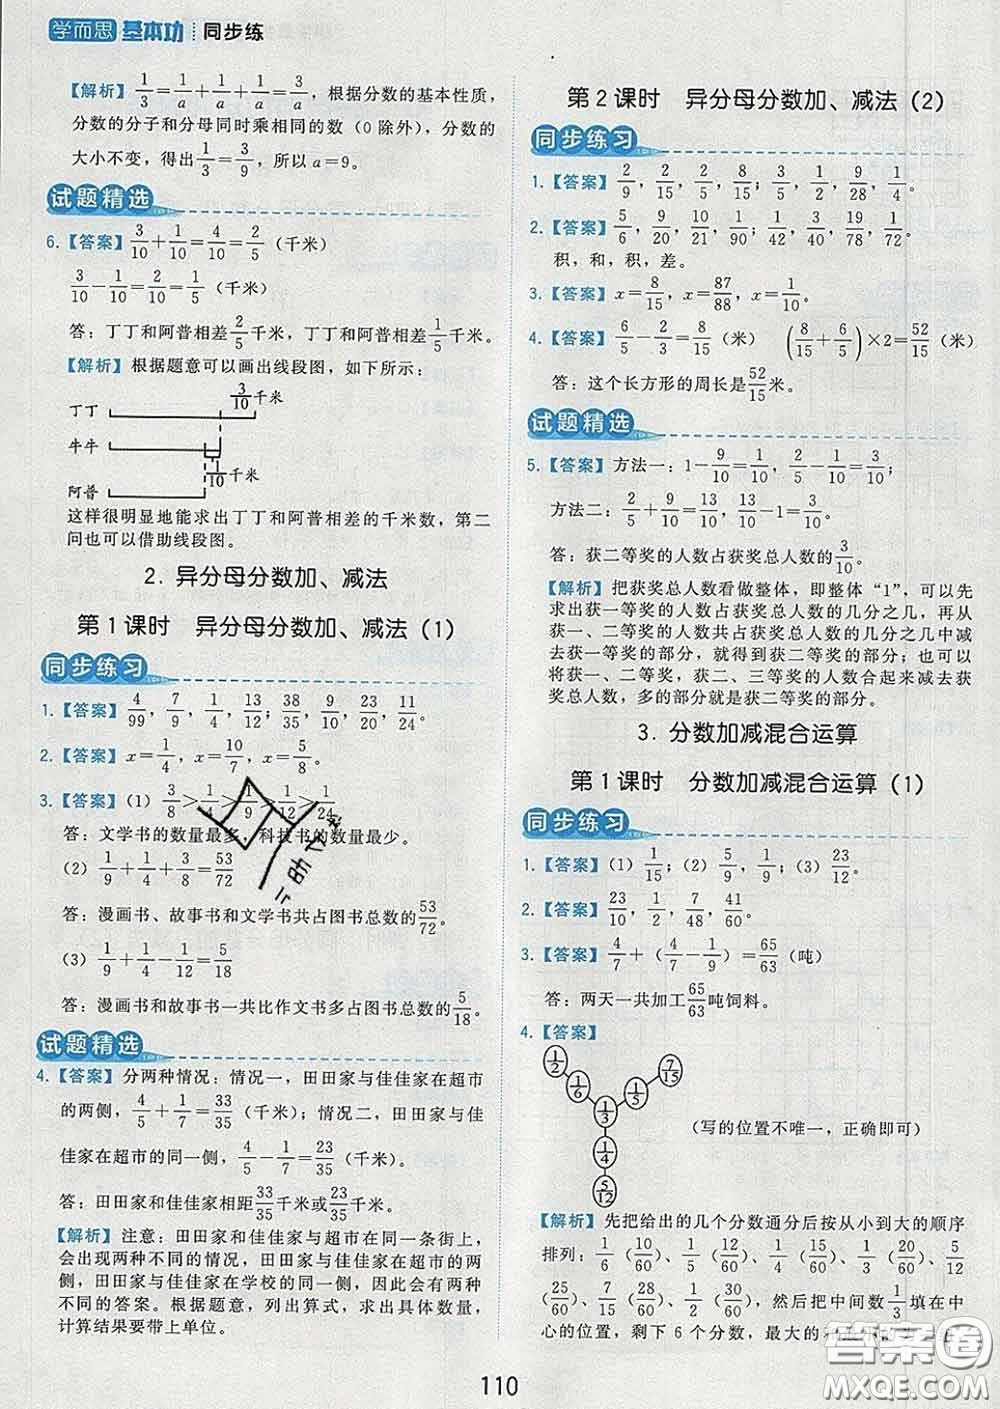 学而思 基本功 同步练
【解析】1/3=1/a+1/a+1/a=3/a，根据分数的基本性质，
分数的分子和分母同时乘相同的数（0除外），分数的
大小不变，得出1/3=3/9，所以a=9。
试题精选
6.【答案】3/10+1/10=4/10=2/5（千米）
3/10-1/10=2/10=1/5（千米）
答：丁丁和阿普相差2/5千米，丁丁和阿普相差1/5千米。
【解析】根据题意可以画出线段图，如下所示：
3/10千米
丁丁
牛牛
1/10千米
阿普
这样很明显地能求出丁丁和阿普相差的千米数，第二
问也可以借助线段图。
2. 异分母分数加、减法
第1课时 异分母分数加、减法（1）
同步练习
1.【答案】4/99，7/9，1/4，13/12；38/35，9/10，23/20，11/24。
2.【答案】x=1/4，x=10/7，x=5/8。
3.【答案】（1）3/8>1/4>1/9>1/12>1/24
答：文学书的数量最多，科技书的数量最少。
（2）1/9+1/4+3/8=53/72
答：漫画书、故事书和文学书共占图书总数的53/72。
（3）1/9+1/4-1/12=5/18
答：漫画书和故事书一共比作文书多占图书总数的5/18。
试题精选
4.【答案】分两种情况：情况一，田田家与佳佳家在超市
的两侧，4/5+1/7=33/35（千米）；情况二，田田家与佳
佳家在超市的同一侧，4/5-1/7=23/35（千米）。
答：田田家和佳佳家相距33/35千米或23/35千米。
【解析】注意：田田家和佳佳家与超市在同一条街上，
会出现两种不同的情况，田田家与佳佳家在超市的两
侧，田田家与佳佳家在学校的同一侧，因此会有两
种不同的答案。根据题意，列出算式，求出具体数量，
计算结果要带上单位。
第2课时 异分母分数加、减法（2）
同步练习
1.【答案】2/9，2/15，2/5，8/15；3/5，1/2，9/28，1/4。
2.【答案】5/6，9/20，10/21，19/90；1/42，1/42，1/18，1/72。
积，和，积，差。
3.【答案】x=8/15，x=87/88，x=1/10。
4.【答案】6/5-2/3=8/15（米） (8/15+6/5)×2=52/15（米）
答：这个长方形的周长是52/15米。
试题精选
5.【答案】方法一：1-9/10=1/10，2/5-1/10=3/10；
方法二：2/5+9/10=13/10，13/10-1=3/10。
答：获二等奖的人数占获奖总人数的3/10。
【解析】把获奖总人数看做整体，即整体“1”，可以先
求出获一等奖的人数占获奖总人数的几分之几，再从
获一、二等奖的人数共占获奖总人数的几分之几中减
去获一等奖的部分，就得到获二等奖的部分；也可以
将获一、二等奖，获二、三等奖的人数合起来减去
获奖总人数，多的部分就是获二等奖的部分。
3. 分数加减混合运算
第1课时 分数加减混合运算（1）
同步练习
1.【答案】（1）1/15；（2）5/9，1/9；（3）23/12。
2.【答案】23/10，1/2，7/48，41/60。
3.【答案】4/7+（4/7-1/9）=65/63（吨）
答：两天一共加工65/63吨饲料。
4.【答案】
1/2 1/6 1/5 7/15
1/3
1/4
5/12
（写的位置不唯一，正确即可）
【解析】先把给出的几个分数通分后按从小到大的顺序
排列：1/6（10/60），1/5（12/60），1/4（15/60），1/3（20/60），5/12
（25/60），7/15（28/60），1/2（30/60），然后把中间数1/3填在中
心的位置，剩下6个分数，最大的
答案圈
MXQE.COM
110